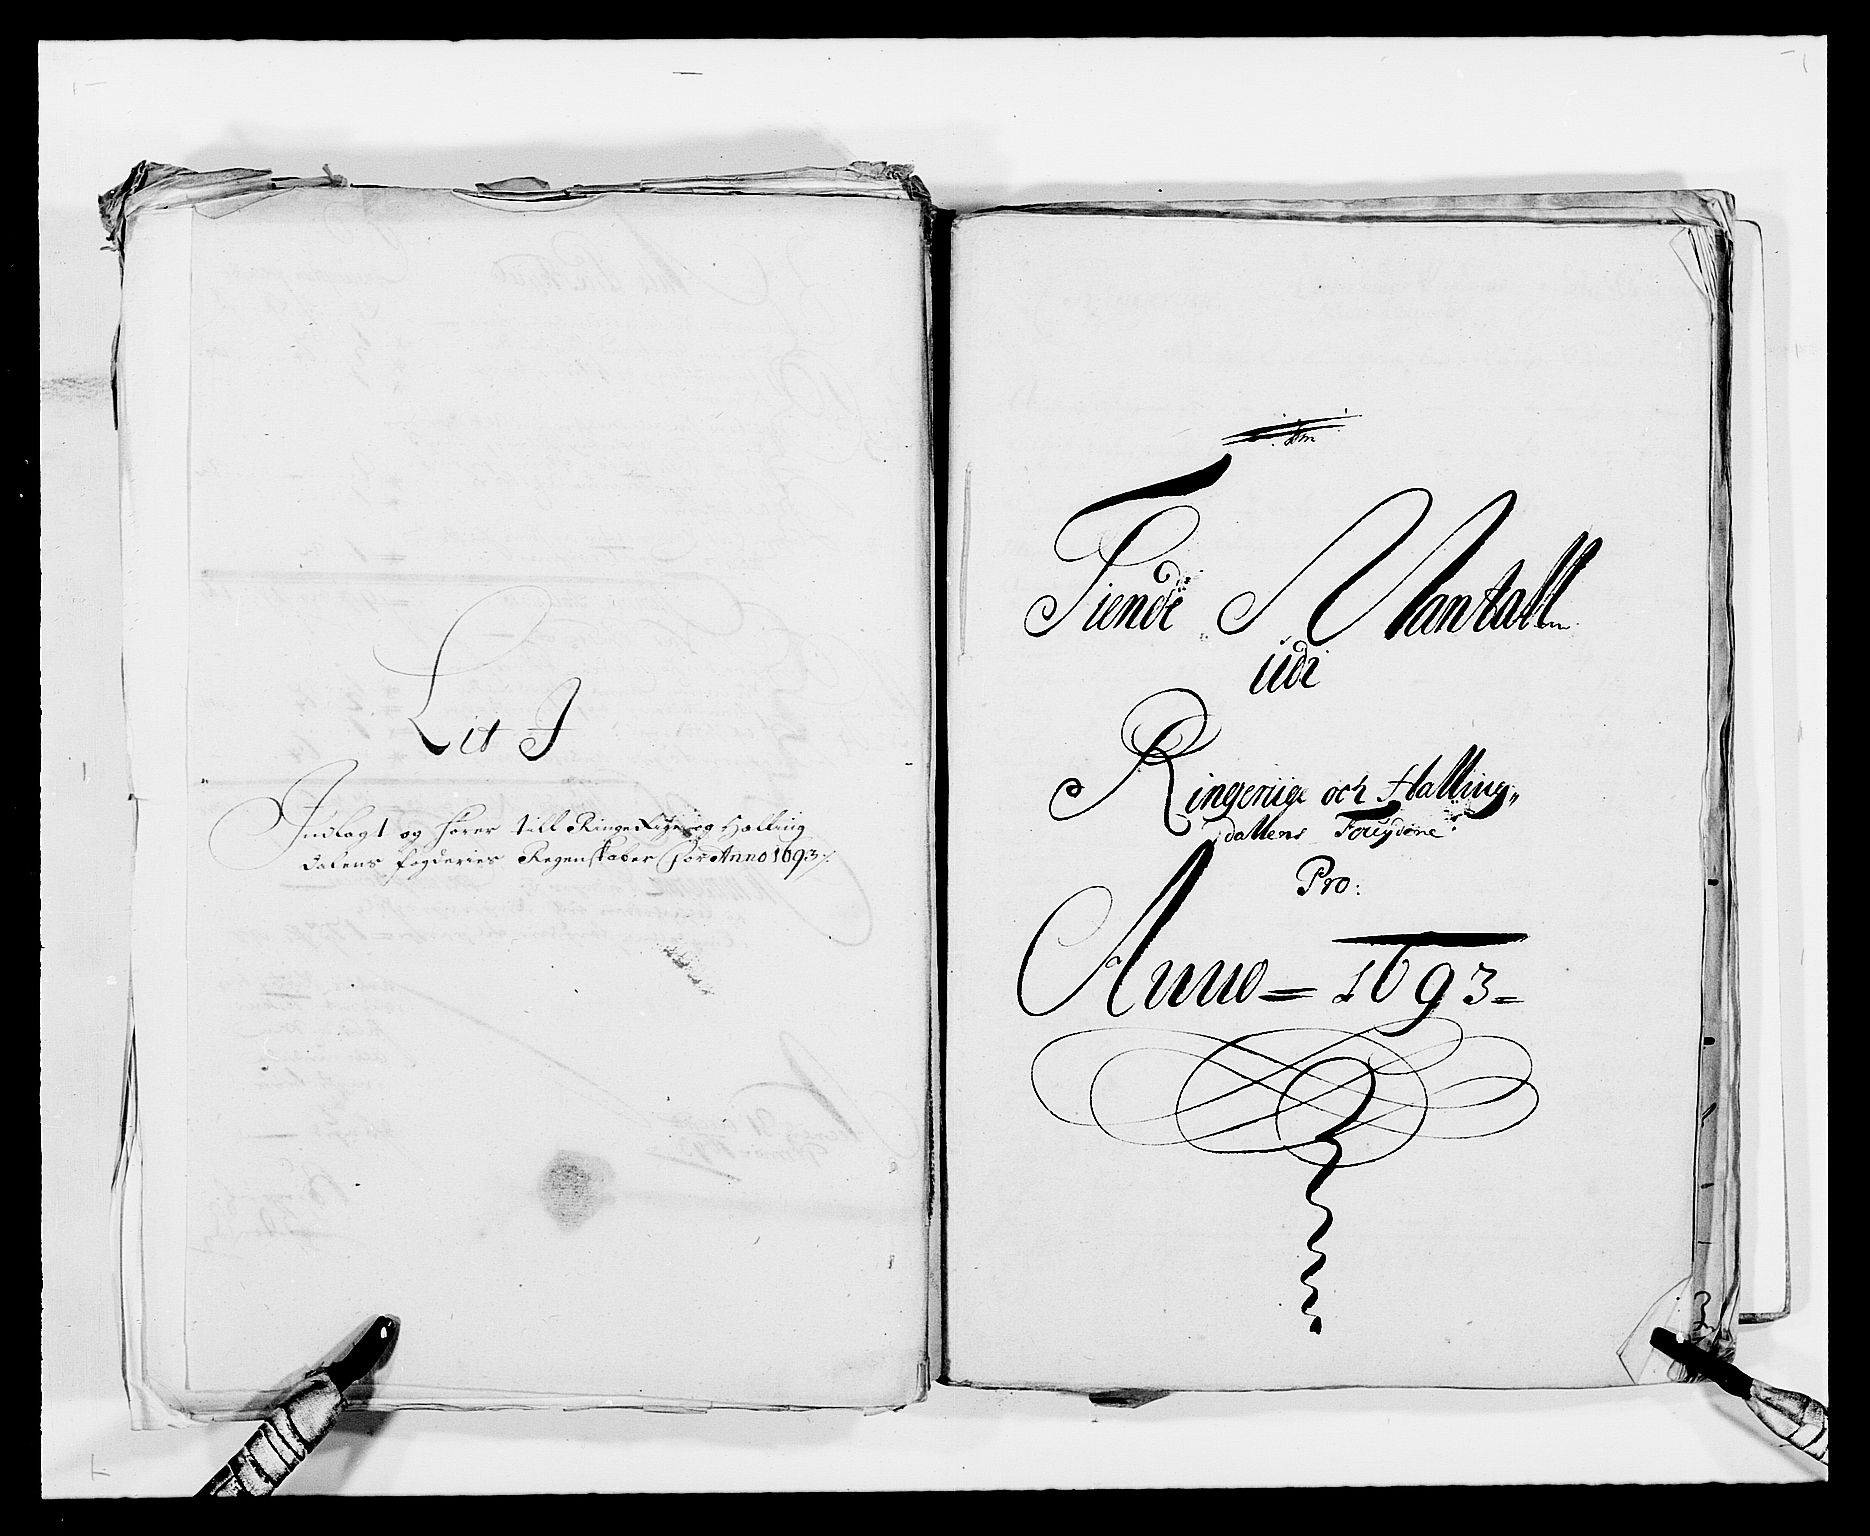 Lit J
Indlagt og hører till RingeRige og Halling
dalens fogderies Regenskaber for Anno 1693
Tiende Mantall
udi
Ringeriige och Halling„
dallens Fougderie:
Pro:
Anno = 1693 =